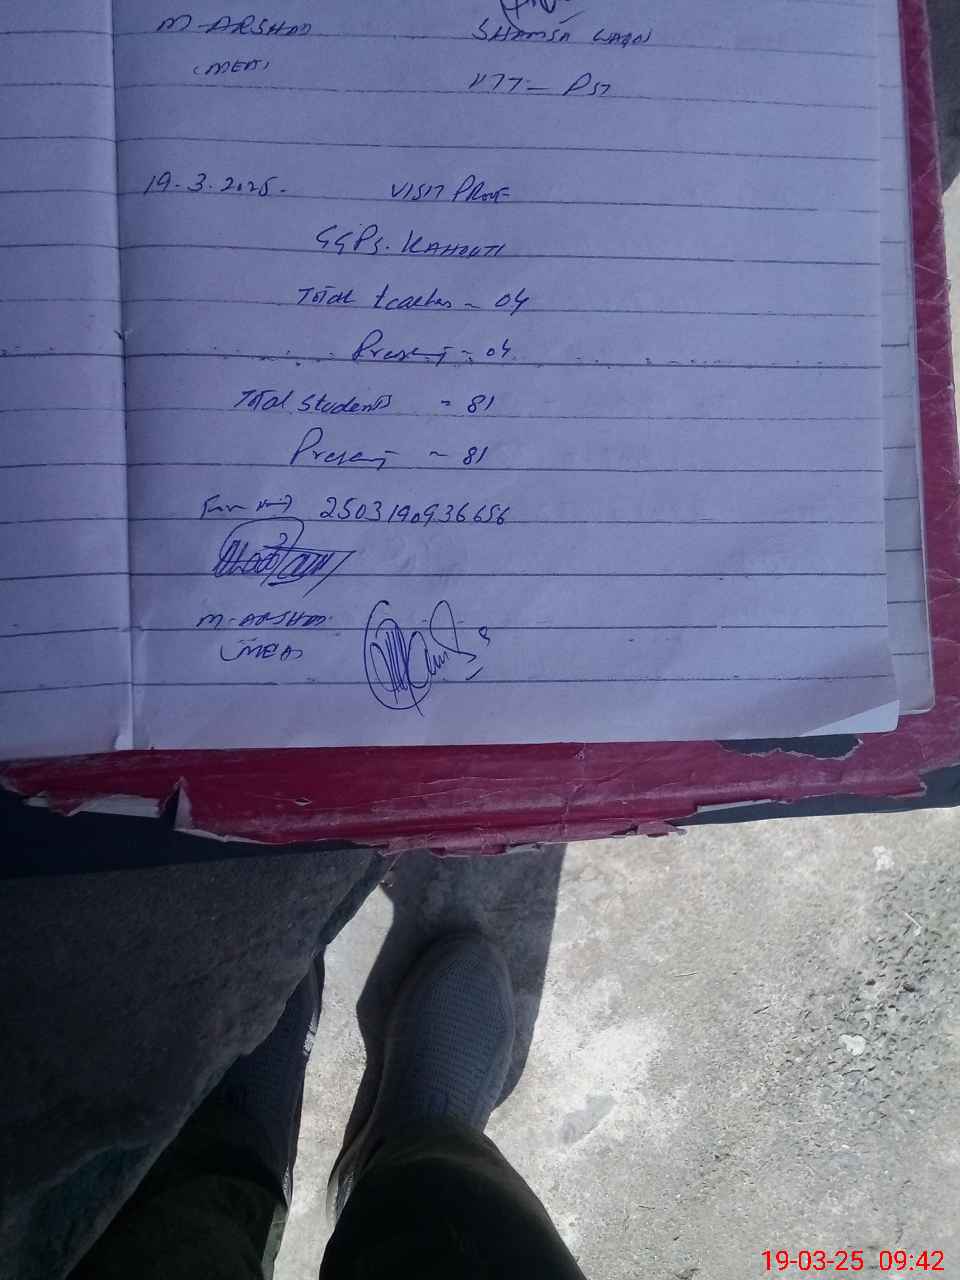 M-ARSHAD SHAMSA
(MEA) HTT- PST
19.3.2025. VISIT PROOF
GGPS. KAHOUTI
Total teaches = 04
Present = 04
Total Students = 81
Present = 81
2503190936656
M-ARSHAD
(MEA)
19-03-25 09:42